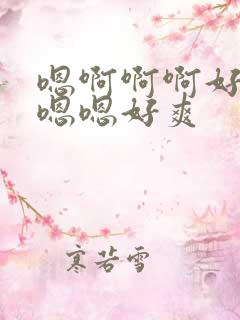 嗯啊啊啊好
嗯嗯好爽
寒若雪